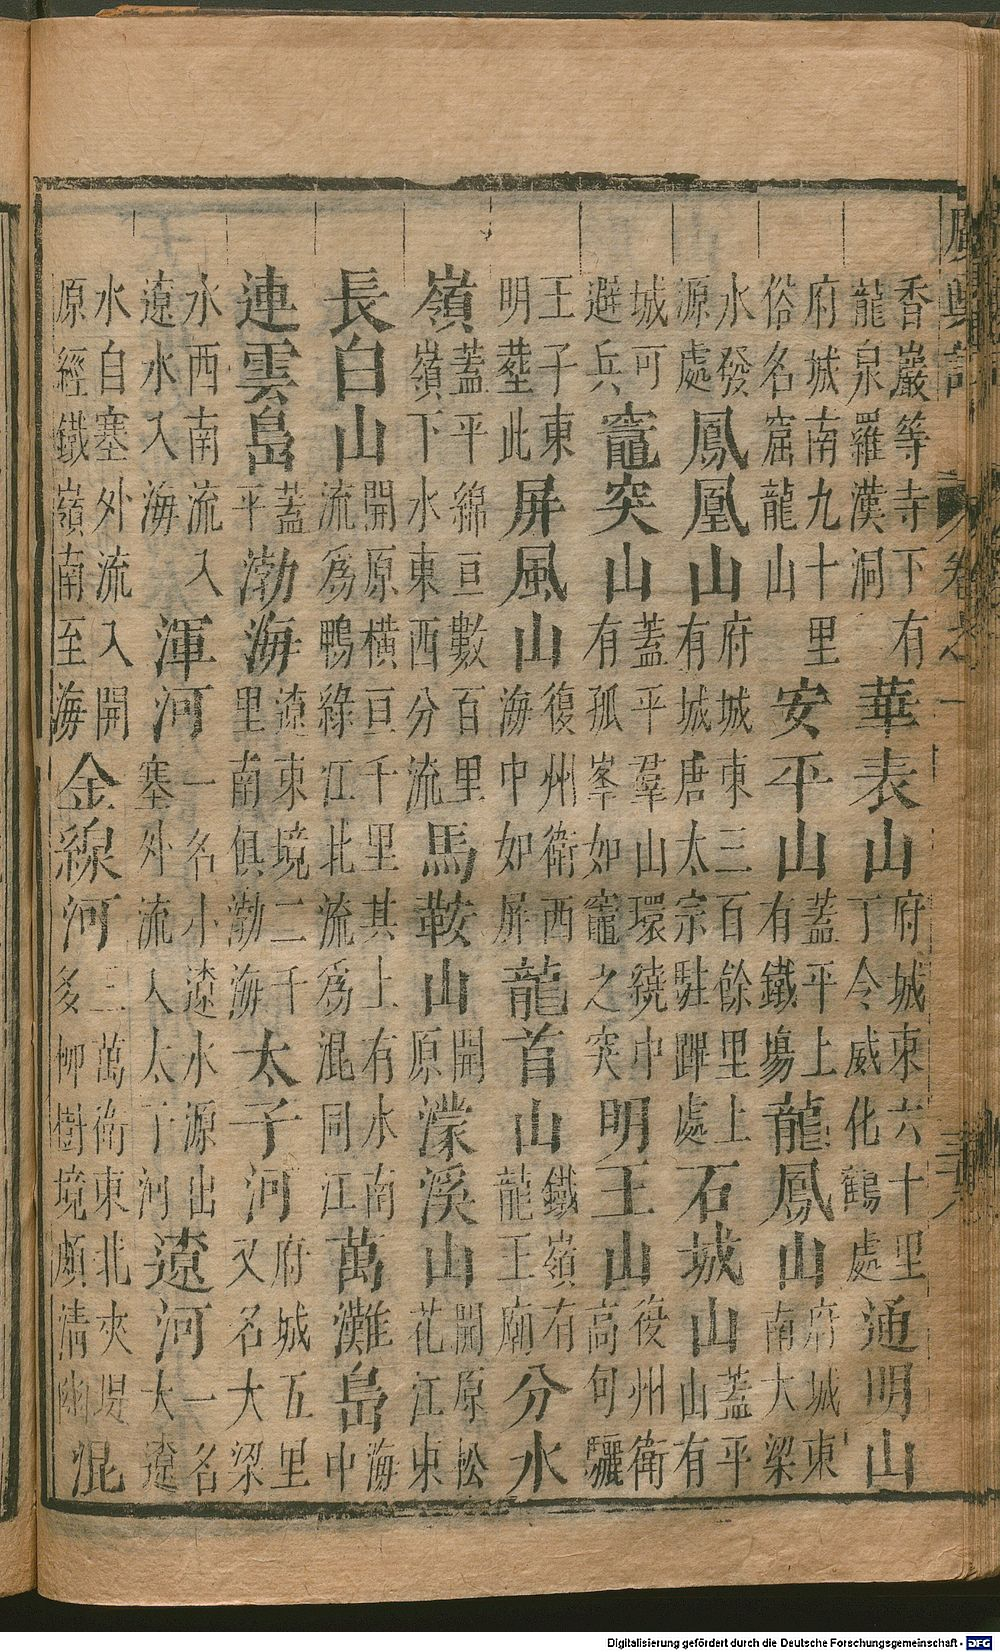 廣輿記 卷之一
香巖等寺下有龍泉羅漢洞華表山府城東六十里丁令威化鶴處通明山
府城南九十里俗名窟龍山安平山蓋平上有鐵場龍鳳山府城東南大梁
水發源處鳳凰山府城東三百餘里上有城唐太宗駐蹕處石城山蓋平山有
城可避兵竈突山蓋平羣山環繞中有孤峯如竈之突明王山復州衛高句驪
王子東明塟此屏風山復州衛西海中如屏龍首山鐵嶺有龍王廟分水
嶺蓋平綿亘數百里嶺下水東西分流馬鞍山開原濛溪山開原松花江東
長白山開原橫亘千里其上有水南流爲鴨綠江北流爲混同江萬灘島海中
連雲島蓋平渤海遼東境二千里南俱渤海太子河府城五里又名大梁
水西南流入遼水入海渾河一名小遼水源出塞外流入太子河遼河一名大遼
水自塞外流入開原經鐵嶺南至海金線河三萬衛東北夾堤多柳樹境頗清幽混
Digitalisierung gefördert durch die Deutsche Forschungsgemeinschaft - DFG